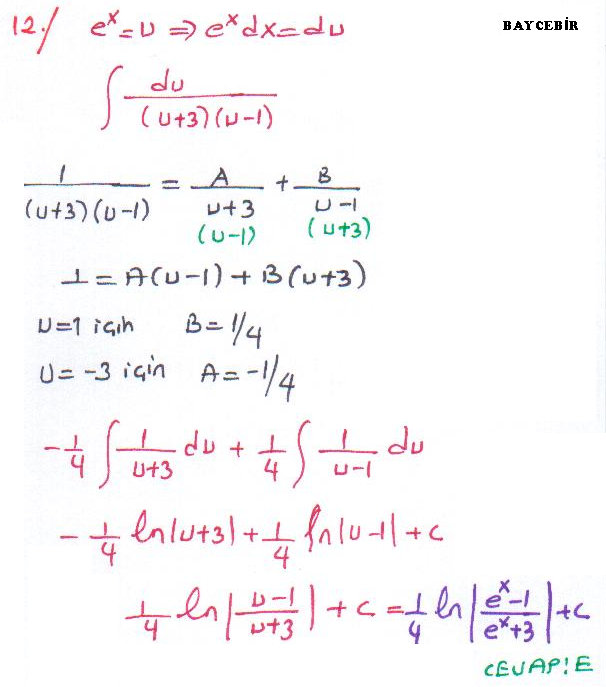 12./ eˣ = u ⇒ eˣ dx = du
BAYCEBİR
∫ du / (u+3)(u-1)
1 / (u+3)(u-1) = A / u+3 + B / u-1
(u-1) (u+3)
1 = A(u-1) + B(u+3)
u=1 için B = 1/4
u = -3 için A = -1/4
-1/4 ∫ 1/u+3 du + 1/4 ∫ 1/u-1 du
-1/4 ln|u+3| + 1/4 ln|u-1| + c
1/4 ln|u-1 / u+3| + c = 1/4 ln|eˣ-1 / eˣ+3| + c
CEVAP: E